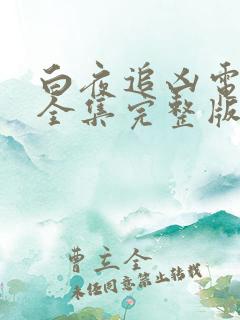 白夜追凶电
全集完整版
曹立全
未经同意禁止转载